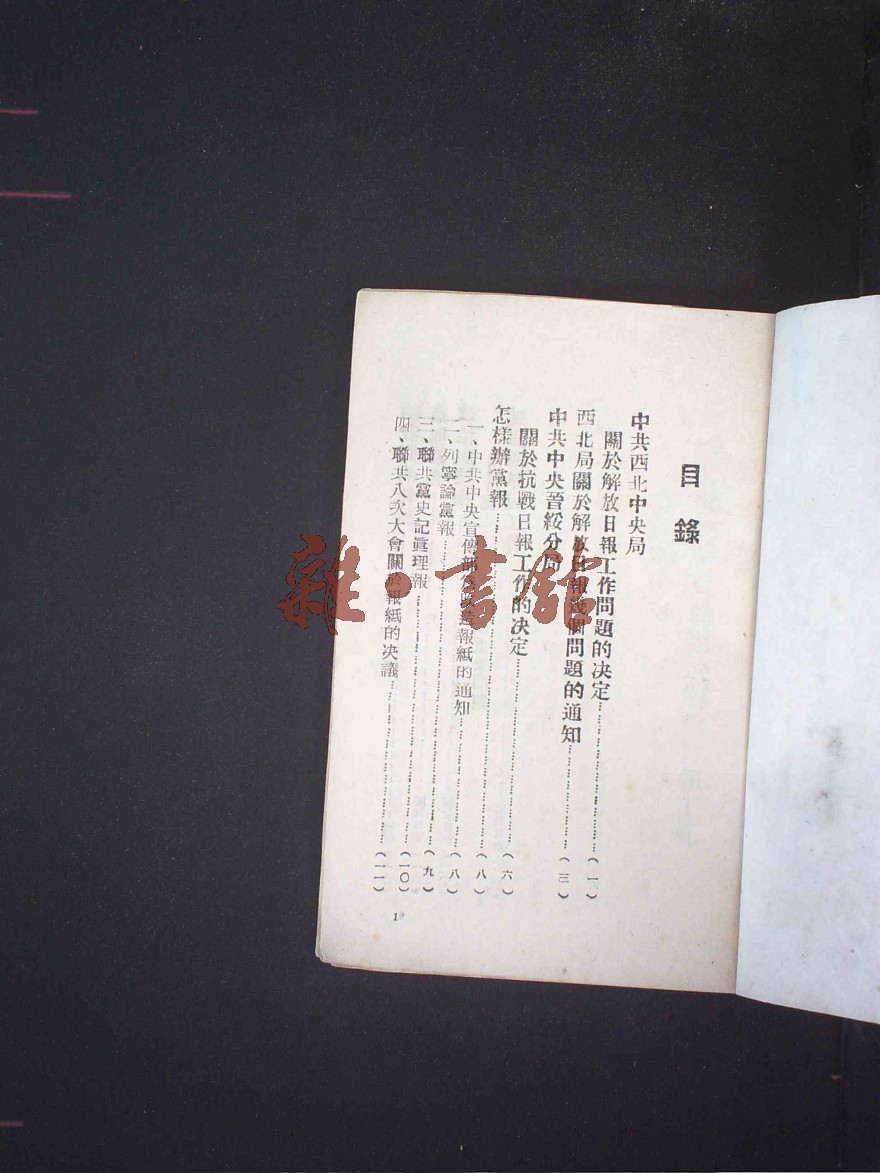 目錄
中共西北中央局
關於解放日報工作問題的决定……………………(一)
西北局關於解放日報幾個問題的通知……………………(三)
中共中央晉綏分局
關於抗戰日報工作的决定……………………(六)
怎樣辦黨報……………………(八)
一、中共中央宣傳部爲改造報紙的通知……………………(八)
二、列寧論黨報……………………(九)
三、聯共黨史記眞理報……………………(一〇)
四、聯共八次大會關於報紙的决議……………………(一一)
1
雜·書館